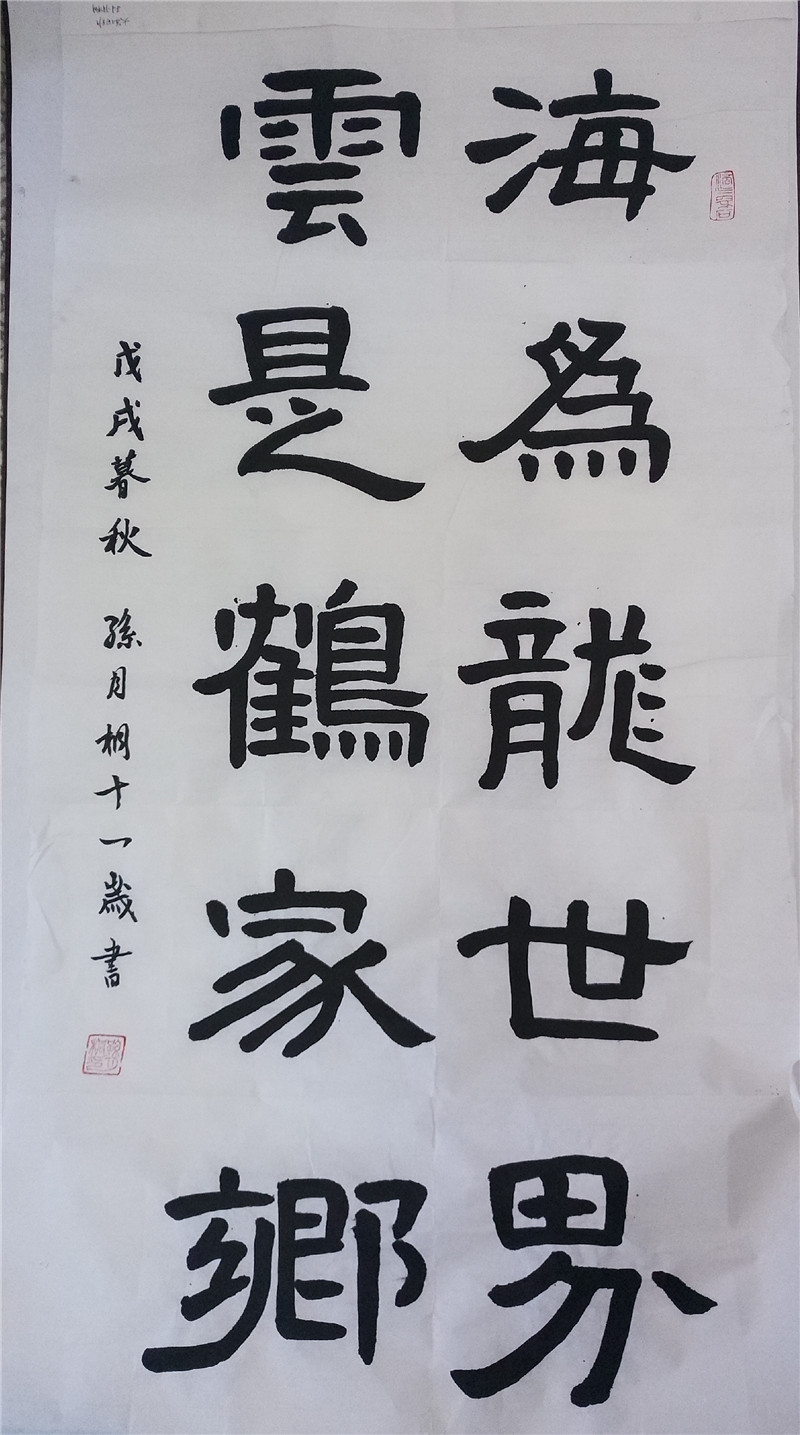 海為龍世界
雲是鶴家鄉
戊戌暮秋 孫月桐十一歲書